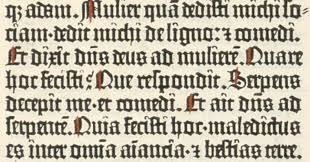 qȝ adam. Mulier quā dedisti michi so-
ciam·dedit michi de ligno: ⁊ comedi.
Et dixit dn̄s deus ad mulierē. Quare
hoc fecisti? Que respondit. Serpens
decepit me·et comedi. Et ait dn̄s ad
serpentē. Quia fecisti hoc·maledictus
es inter om̄ia aīancia·⁊ bestias terre.